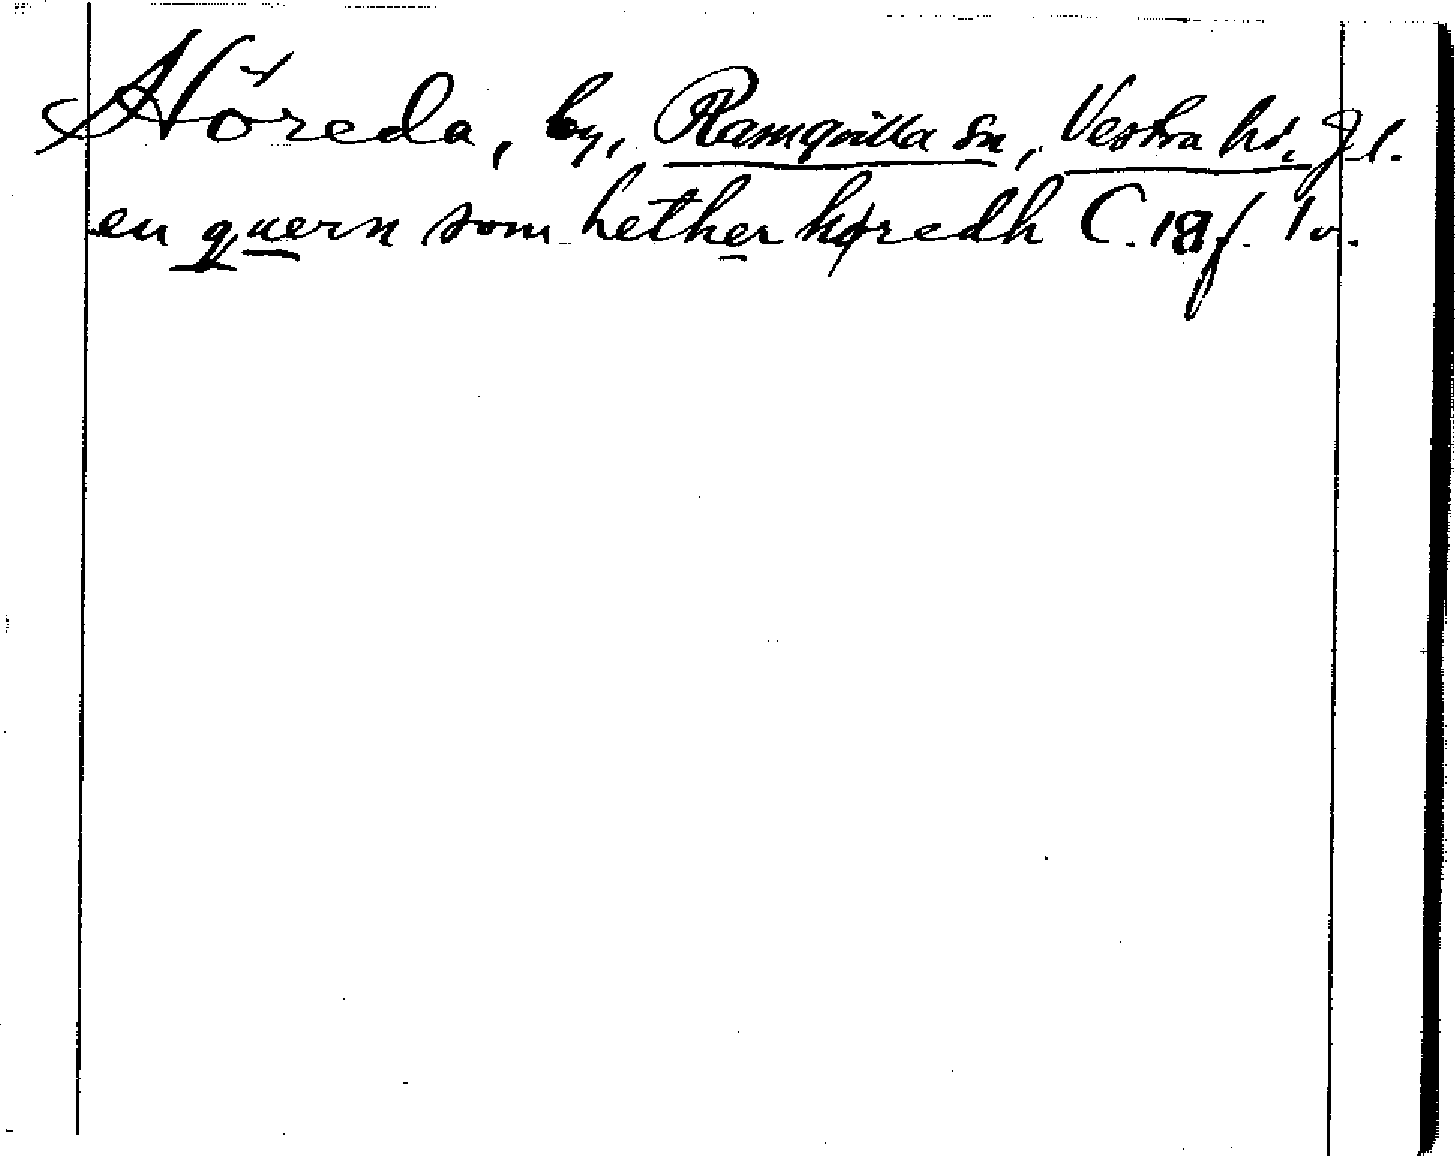 Höreda, by, Ramqvilla sn, Vestra hd. Jl.
en quern som hether høredh C. 18 f. 1 v.